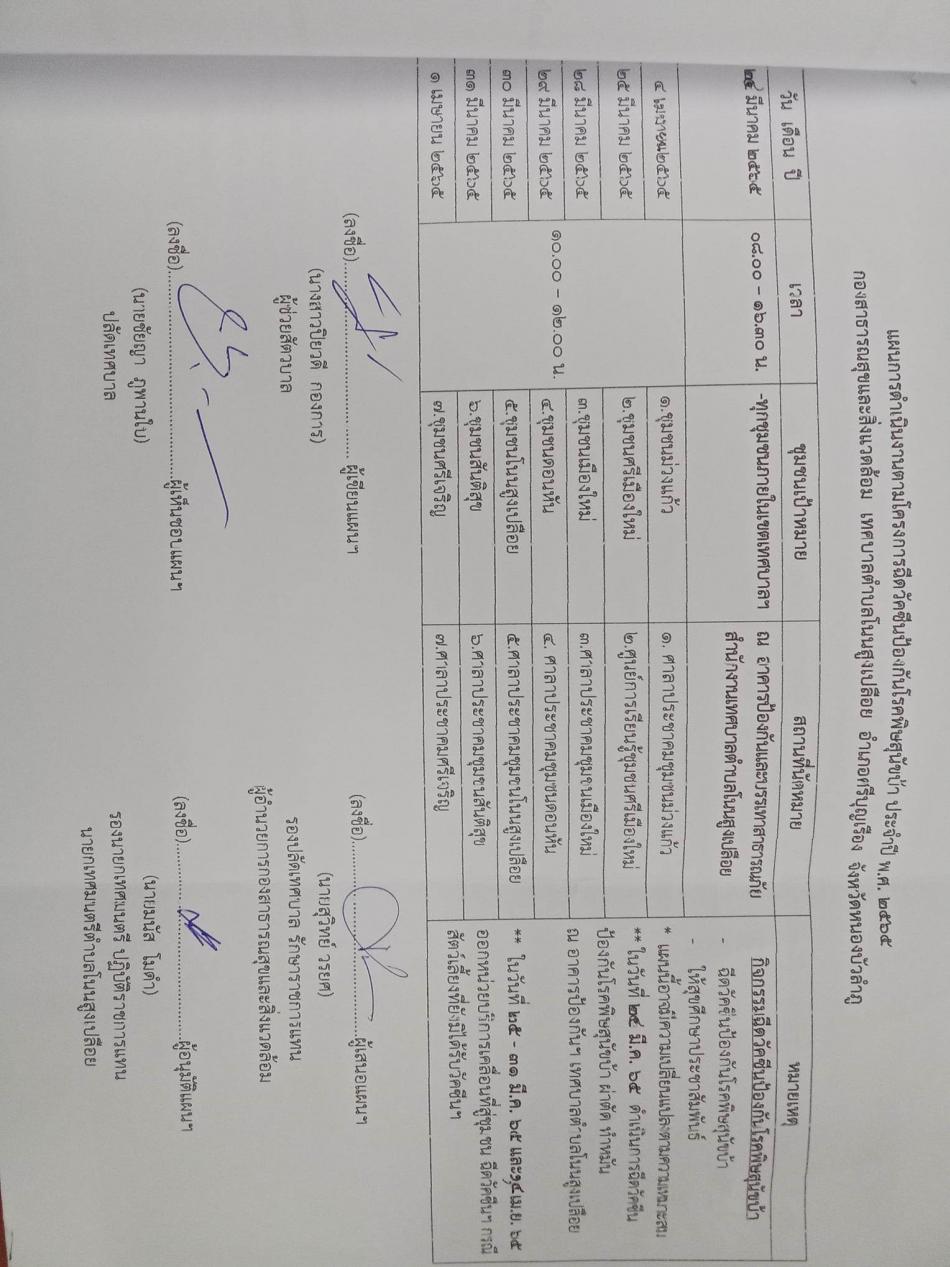 แผนการดำเนินงานตามโครงการฉีดวัคซีนป้องกันโรคพิษสุนัขบ้า ประจำปี พ.ศ. ๒๕๖๕
กองสาธารณสุขและสิ่งแวดล้อม เทศบาลตำบลโนนสูงเปลือย อำเภอศรีบุญเรือง จังหวัดหนองบัวลำภู
วัน เดือน ปี เวลา ชุมชนเป้าหมาย สถานที่นัดหมาย หมายเหตุ
๒๔ มีนาคม ๒๕๖๕ ๐๘.๐๐ – ๑๖.๓๐ น. -ทุกชุมชนภายในเขตเทศบาลฯ ณ อาคารป้องกันและบรรเทาสาธารณภัย
สำนักงานเทศบาลตำบลโนนสูงเปลือย
๔ เมษายน๒๕๖๕ ๑.ชุมชนม่วงแก้ว ๑. ศาลาประชาคมชุมชนม่วงแก้ว
๒๕ มีนาคม ๒๕๖๕ ๒.ชุมชนศรีเมืองใหม่ ๒.ศูนย์การเรียนรู้ชุมชนศรีเมืองใหม่
๒๘ มีนาคม ๒๕๖๕ ๓.ชุมชนเมืองใหม่ ๓.ศาลาประชาคมชุมชนเมืองใหม่
๒๙ มีนาคม ๒๕๖๕ ๑๐.๐๐ – ๑๒.๐๐ น. ๔.ชุมชนดอนหัน ๔. ศาลาประชาคมชุมชนดอนหัน
๓๐ มีนาคม ๒๕๖๕ ๕.ชุมชนโนนสูงเปลือย ๕.ศาลาประชาคมชุมชนโนนสูงเปลือย
๓๑ มีนาคม ๒๕๖๕ ๖.ชุมชนสันติสุข ๖.ศาลาประชาคมชุมชนสันติสุข
๑ เมษายน ๒๕๖๕ ๗.ชุมชนศรีเจริญ ๗.ศาลาประชาคมศรีเจริญ
กิจกรรมฉีดวัคซีนป้องกันโรคพิษสุนัขบ้า
- ฉีดวัคซีนป้องกันโรคพิษสุนัขบ้า
- ให้สุขศึกษาประชาสัมพันธ์
* แผนนี้อาจมีความเปลี่ยนแปลงตามความเหมาะสม
** ในวันที่ ๒๔ มี.ค. ๖๕ ดำเนินการฉีดวัคซีน
ป้องกันโรคพิษสุนัขบ้า ผ่าตัด ทำหมัน
ณ อาคารป้องกันฯ เทศบาลตำบลโนนสูงเปลือย
** ในวันที่ ๒๕ - ๓๑ มี.ค. ๖๕ และ๑,๔ เม.ย. ๖๕
ออกหน่วยบริการเคลื่อนที่สู่ชุมชน ฉีดวัคซีนฯ กรณี
สัตว์เลี้ยงที่ยังมิได้รับวัคซีนฯ
(ลงชื่อ)........................ผู้เขียนแผนฯ
(นางสาวปิยวดี กองการ)
ผู้ช่วยสัตวบาล
(ลงชื่อ)........................ผู้เสนอแผนฯ
(นายสุวิทย์ วรยศ)
รองปลัดเทศบาล รักษาราชการแทน
ผู้อำนวยการกองสาธารณสุขและสิ่งแวดล้อม
(ลงชื่อ)........................ผู้เห็นชอบแผนฯ
(นายชัยญา ภูพานใบ)
ปลัดเทศบาล
(ลงชื่อ)........................ผู้อนุมัติแผนฯ
(นายมนัส โมดำ)
รองนายกเทศมนตรี ปฏิบัติราชการแทน
นายกเทศมนตรีตำบลโนนสูงเปลือย